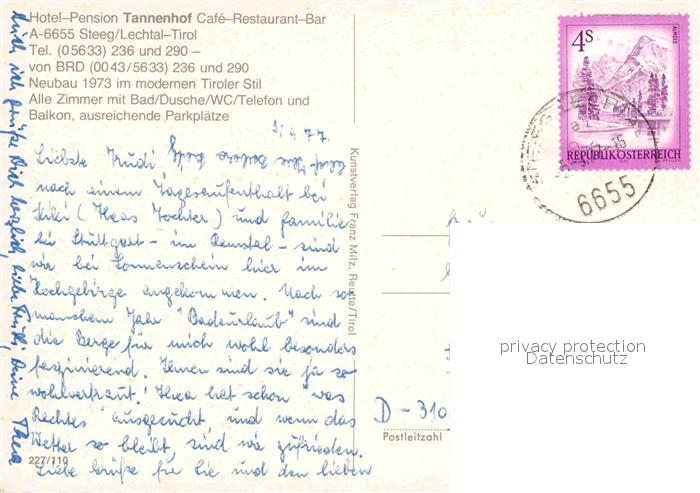 Hotel-Pension Tannenhof Café-Restaurant-Bar
A-6655 Steeg/Lechtal-Tirol
Tel. (05633) 236 und 290 –
von BRD (0043/5633) 236 und 290
Neubau 1973 im modernen Tiroler Stil
Alle Zimmer mit Bad/Dusche/WC/Telefon und
Balkon, ausreichende Parkplätze
77
Liebste Trudi
nach einem Tagesaufenthalt bei
(Theas Tochter) und Familie
bei Stuttgart - im Remstal - sind
wir bei Sonnenschein hier im
Hochgebirge angekommen. Nach so
manchem Jahr "Badeurlaub" sind
die Berge für mich wohl besonders
faszinierend. Ihnen sind sie ja so
wohlvertraut! Thea hat schon "was
Rechtes" ausgesucht, und wenn das
Wetter so bleibt, sind wir zufrieden.
Liebe Grüße für Sie und den lieben
Auch ich grüße Dich herzlich, liebe Trudi, Deine Thea
227/110
Kunstverlag Franz Milz, Reutte/Tirol
4S
ALMSEE
REPUBLIK ÖSTERREICH
6655
privacy protection
Datenschutz
D-310
Postleitzahl